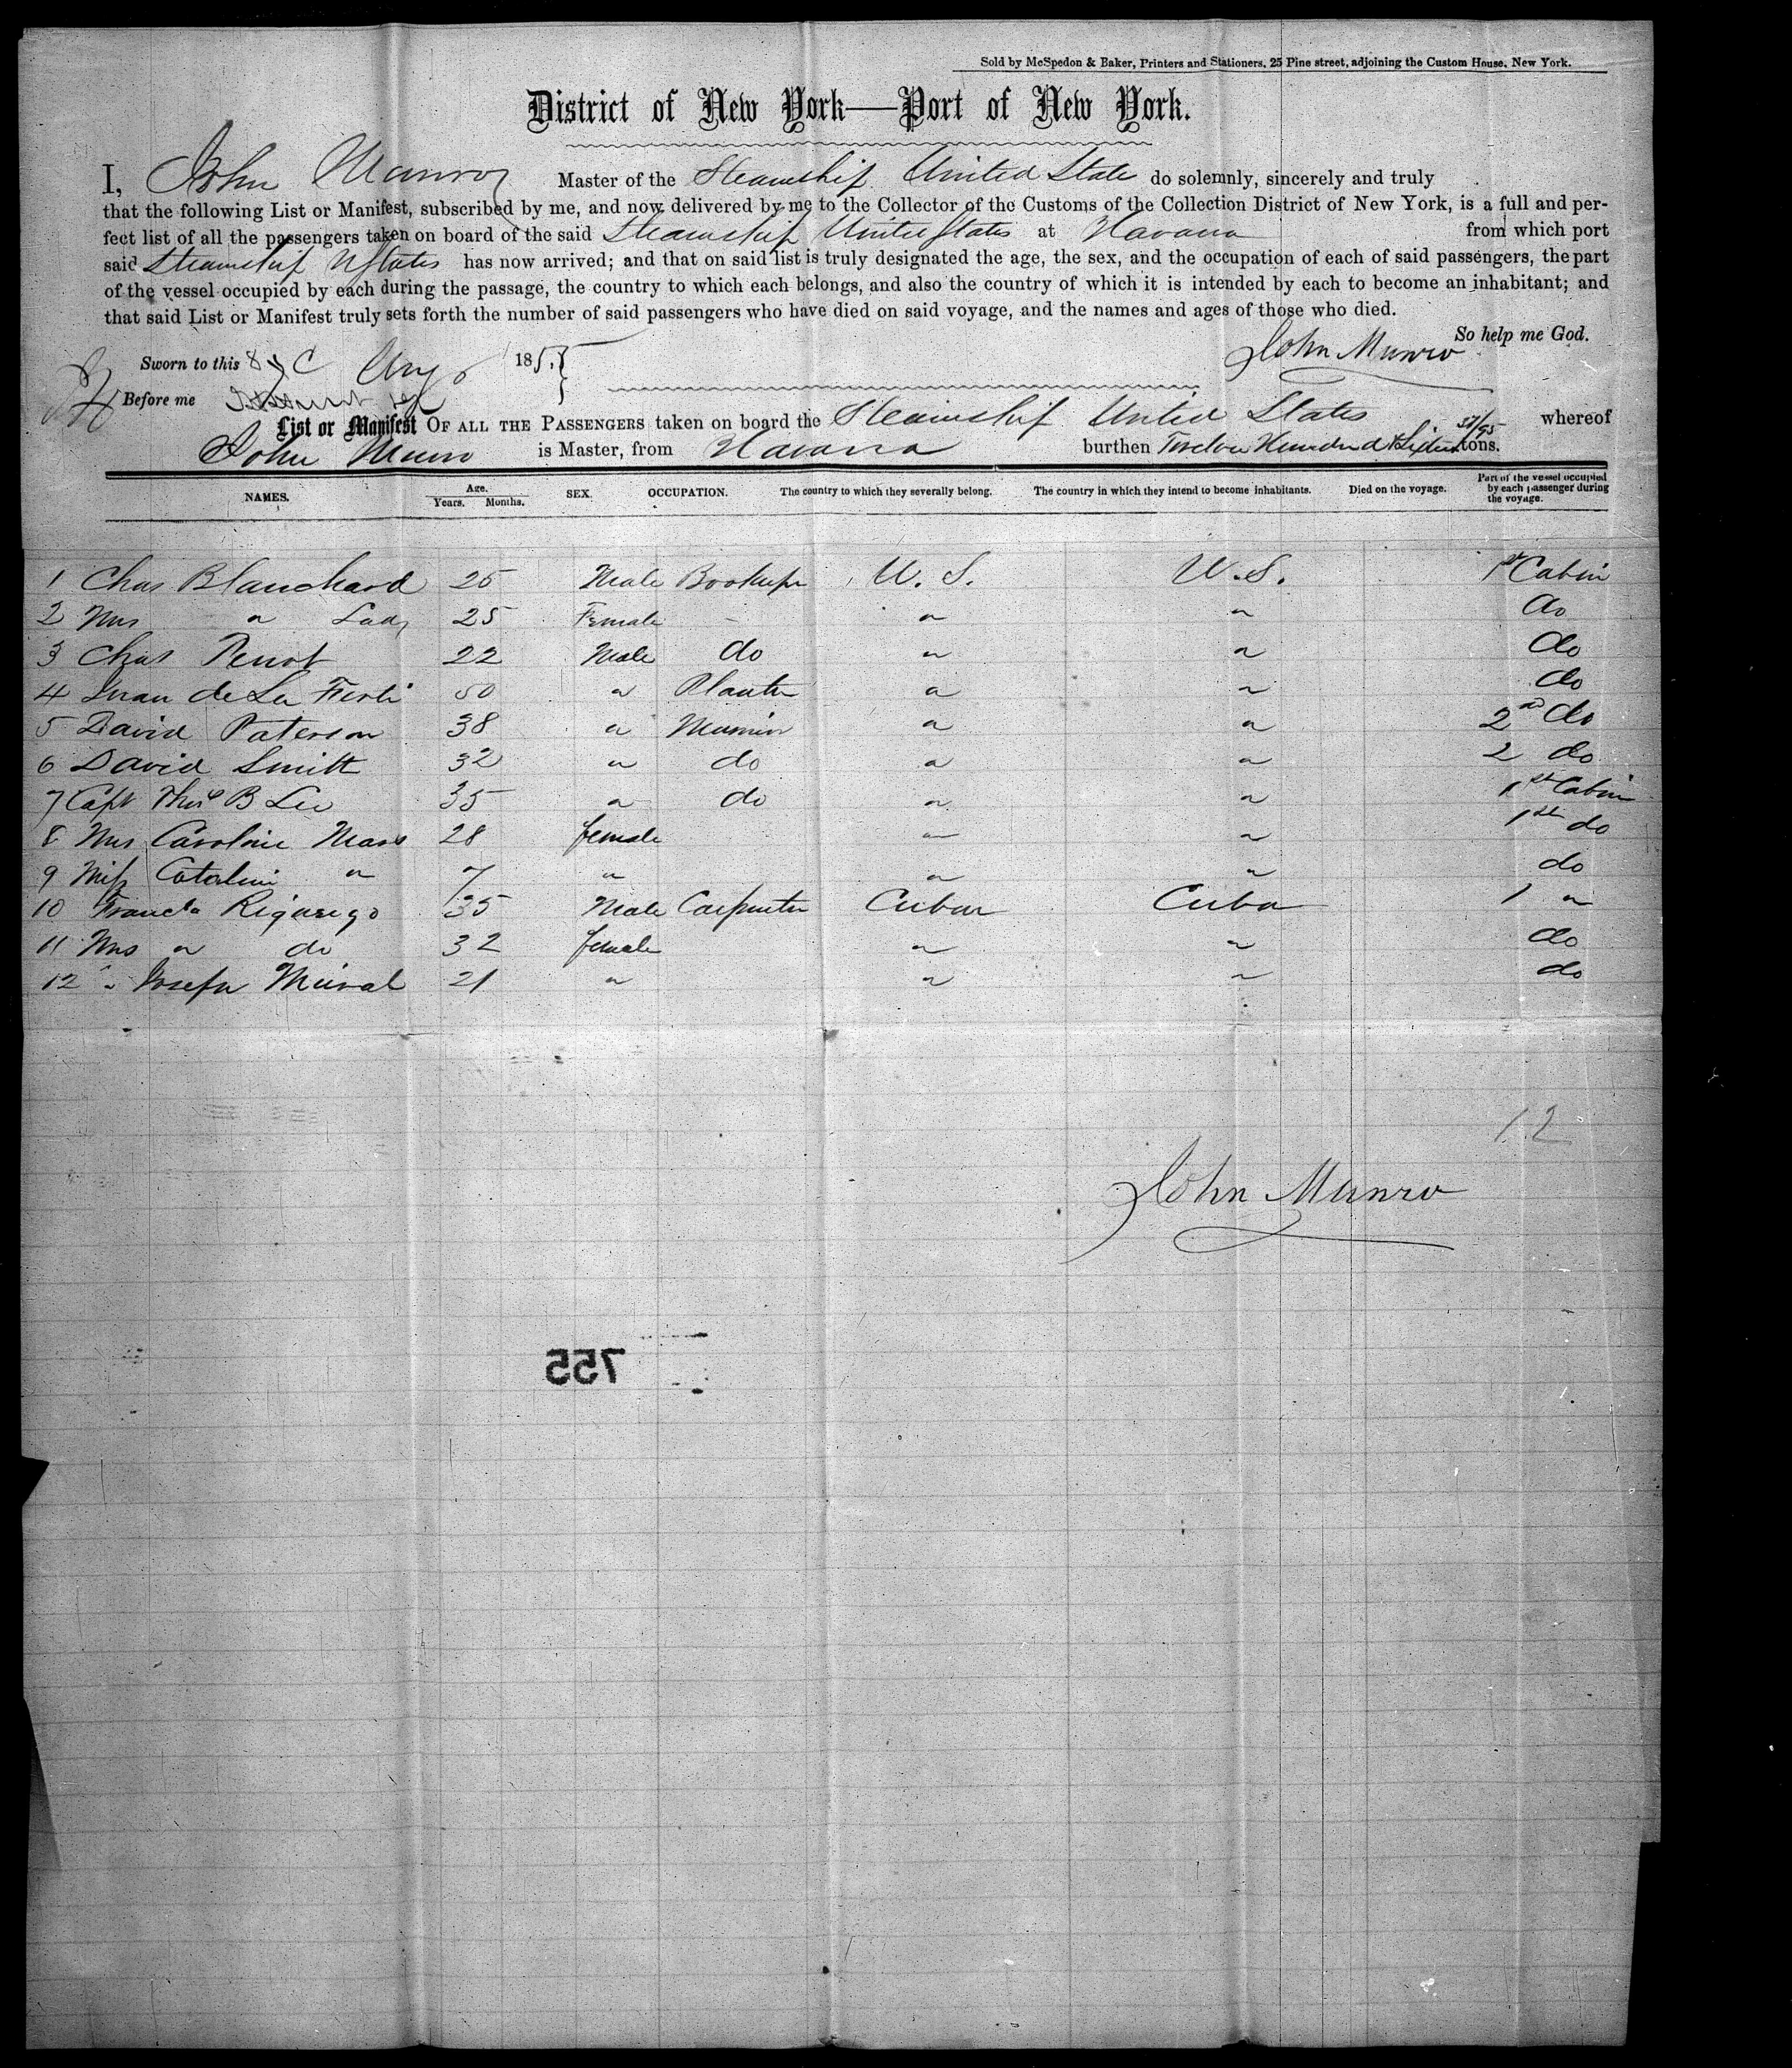 Sold by McSpedon & Baker, Printers and Stationers, 25 Pine street, adjoining the Custom House, New York.
District of New York—Port of New York.
I, John Munroe Master of the Steamship United State do solemnly, sincerely and truly
that the following List or Manifest, subscribed by me, and now delivered by me to the Collector of the Customs of the Collection District of New York, is a full and per-
fect list of all the passengers taken on board of the said Steamship United States at Havana from which port
said Steamship UStates has now arrived; and that on said list is truly designated the age, the sex, and the occupation of each of said passengers, the part
of the vessel occupied by each during the passage, the country to which each belongs, and also the country of which it is intended by each to become an inhabitant; and
that said List or Manifest truly sets forth the number of said passengers who have died on said voyage, and the names and ages of those who died.
So help me God.
Sworn to this 8 Aug 185 John Munro
Before me
List or Manifest OF ALL THE PASSENGERS taken on board the Steamship United States whereof
John Munro is Master, from Havana burthen Twelve Hundred & tons.
NAMES. Age. Years. Months. SEX. OCCUPATION. The country to which they severally belong. The country in which they intend to become inhabitants. Died on the voyage. Part of the vessel occupied by each passenger during the voyage.
1 Chas Blanchard 25 Male U. S. U. S. 1st Cabin
2 Mrs " Lady 25 Female - " " do
3 Chas 22 Male do " " do
4 Juan de La 50 " Planter " " do
5 David Paterson 38 " " " 2nd do
6 David Smith 32 " do " " 2 do
7 Capt Thos B Lee 35 " do " " 1st Cabin
8 Mrs Caroline 28 female " " 1st do
9 Miss " 7 " " " do
10 35 Male Carpenter Cuban Cuba 1 "
11 Mrs " do 32 female " " do
12 " Joseph 21 " " " do
12
John Munro
755